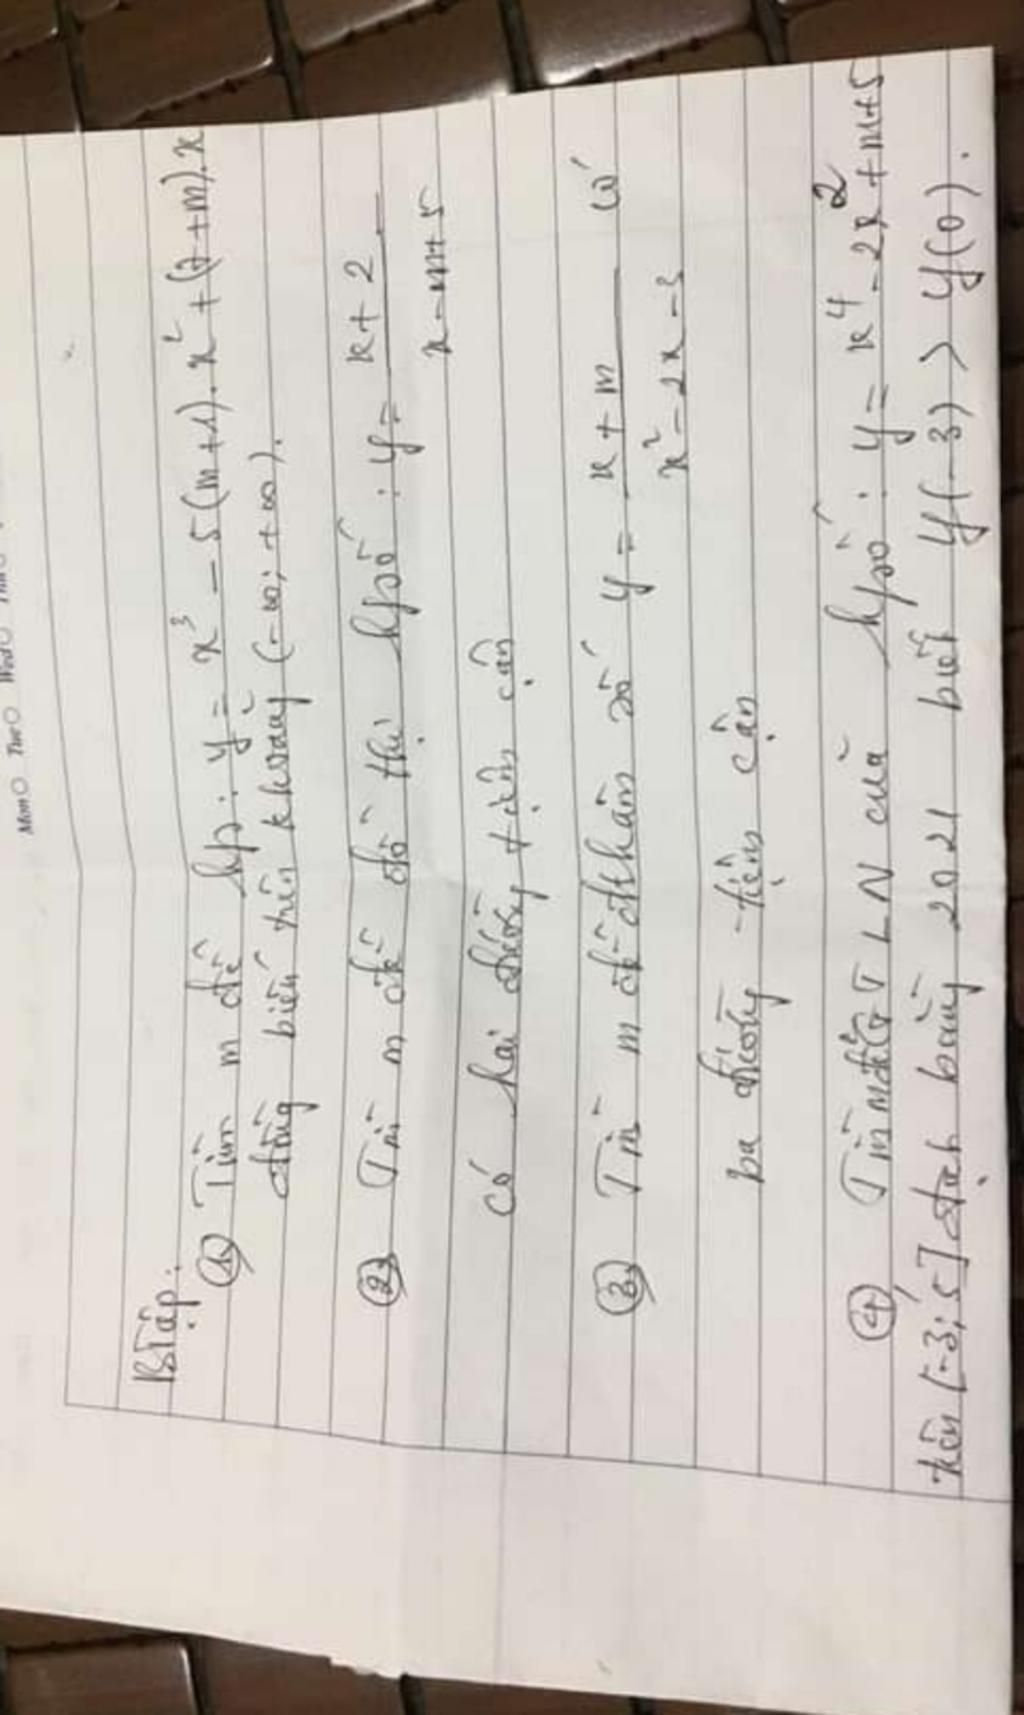 Mon Tue Wed
BTập:
① Tìm m để hs: y = x³ - 5(m+1).x² + (2+m).x
đồng biến trên khoảng (-∞; +∞).
② Tìm m để đồ thị hsố: y = x+2 / x-m+5
có hai đường tiệm cận
③ Tìm m để đthhàm số y = x+m / x²-2x-3 có
ba đường tiệm cận
④ Tìm m để GTLN của hsố: y = x⁴-2x²+m+5
trên [-3; 5] đạt bằng 2021 biết y(-3) > y(0).